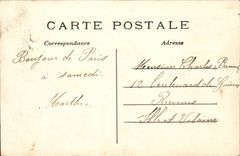 CARTE POSTALE
Correspondance
Adresse
Bonjour de Paris
à samedi
Marthe
Monsieur Charles
12 boulevard de
Rennes
Ille et Vilaine